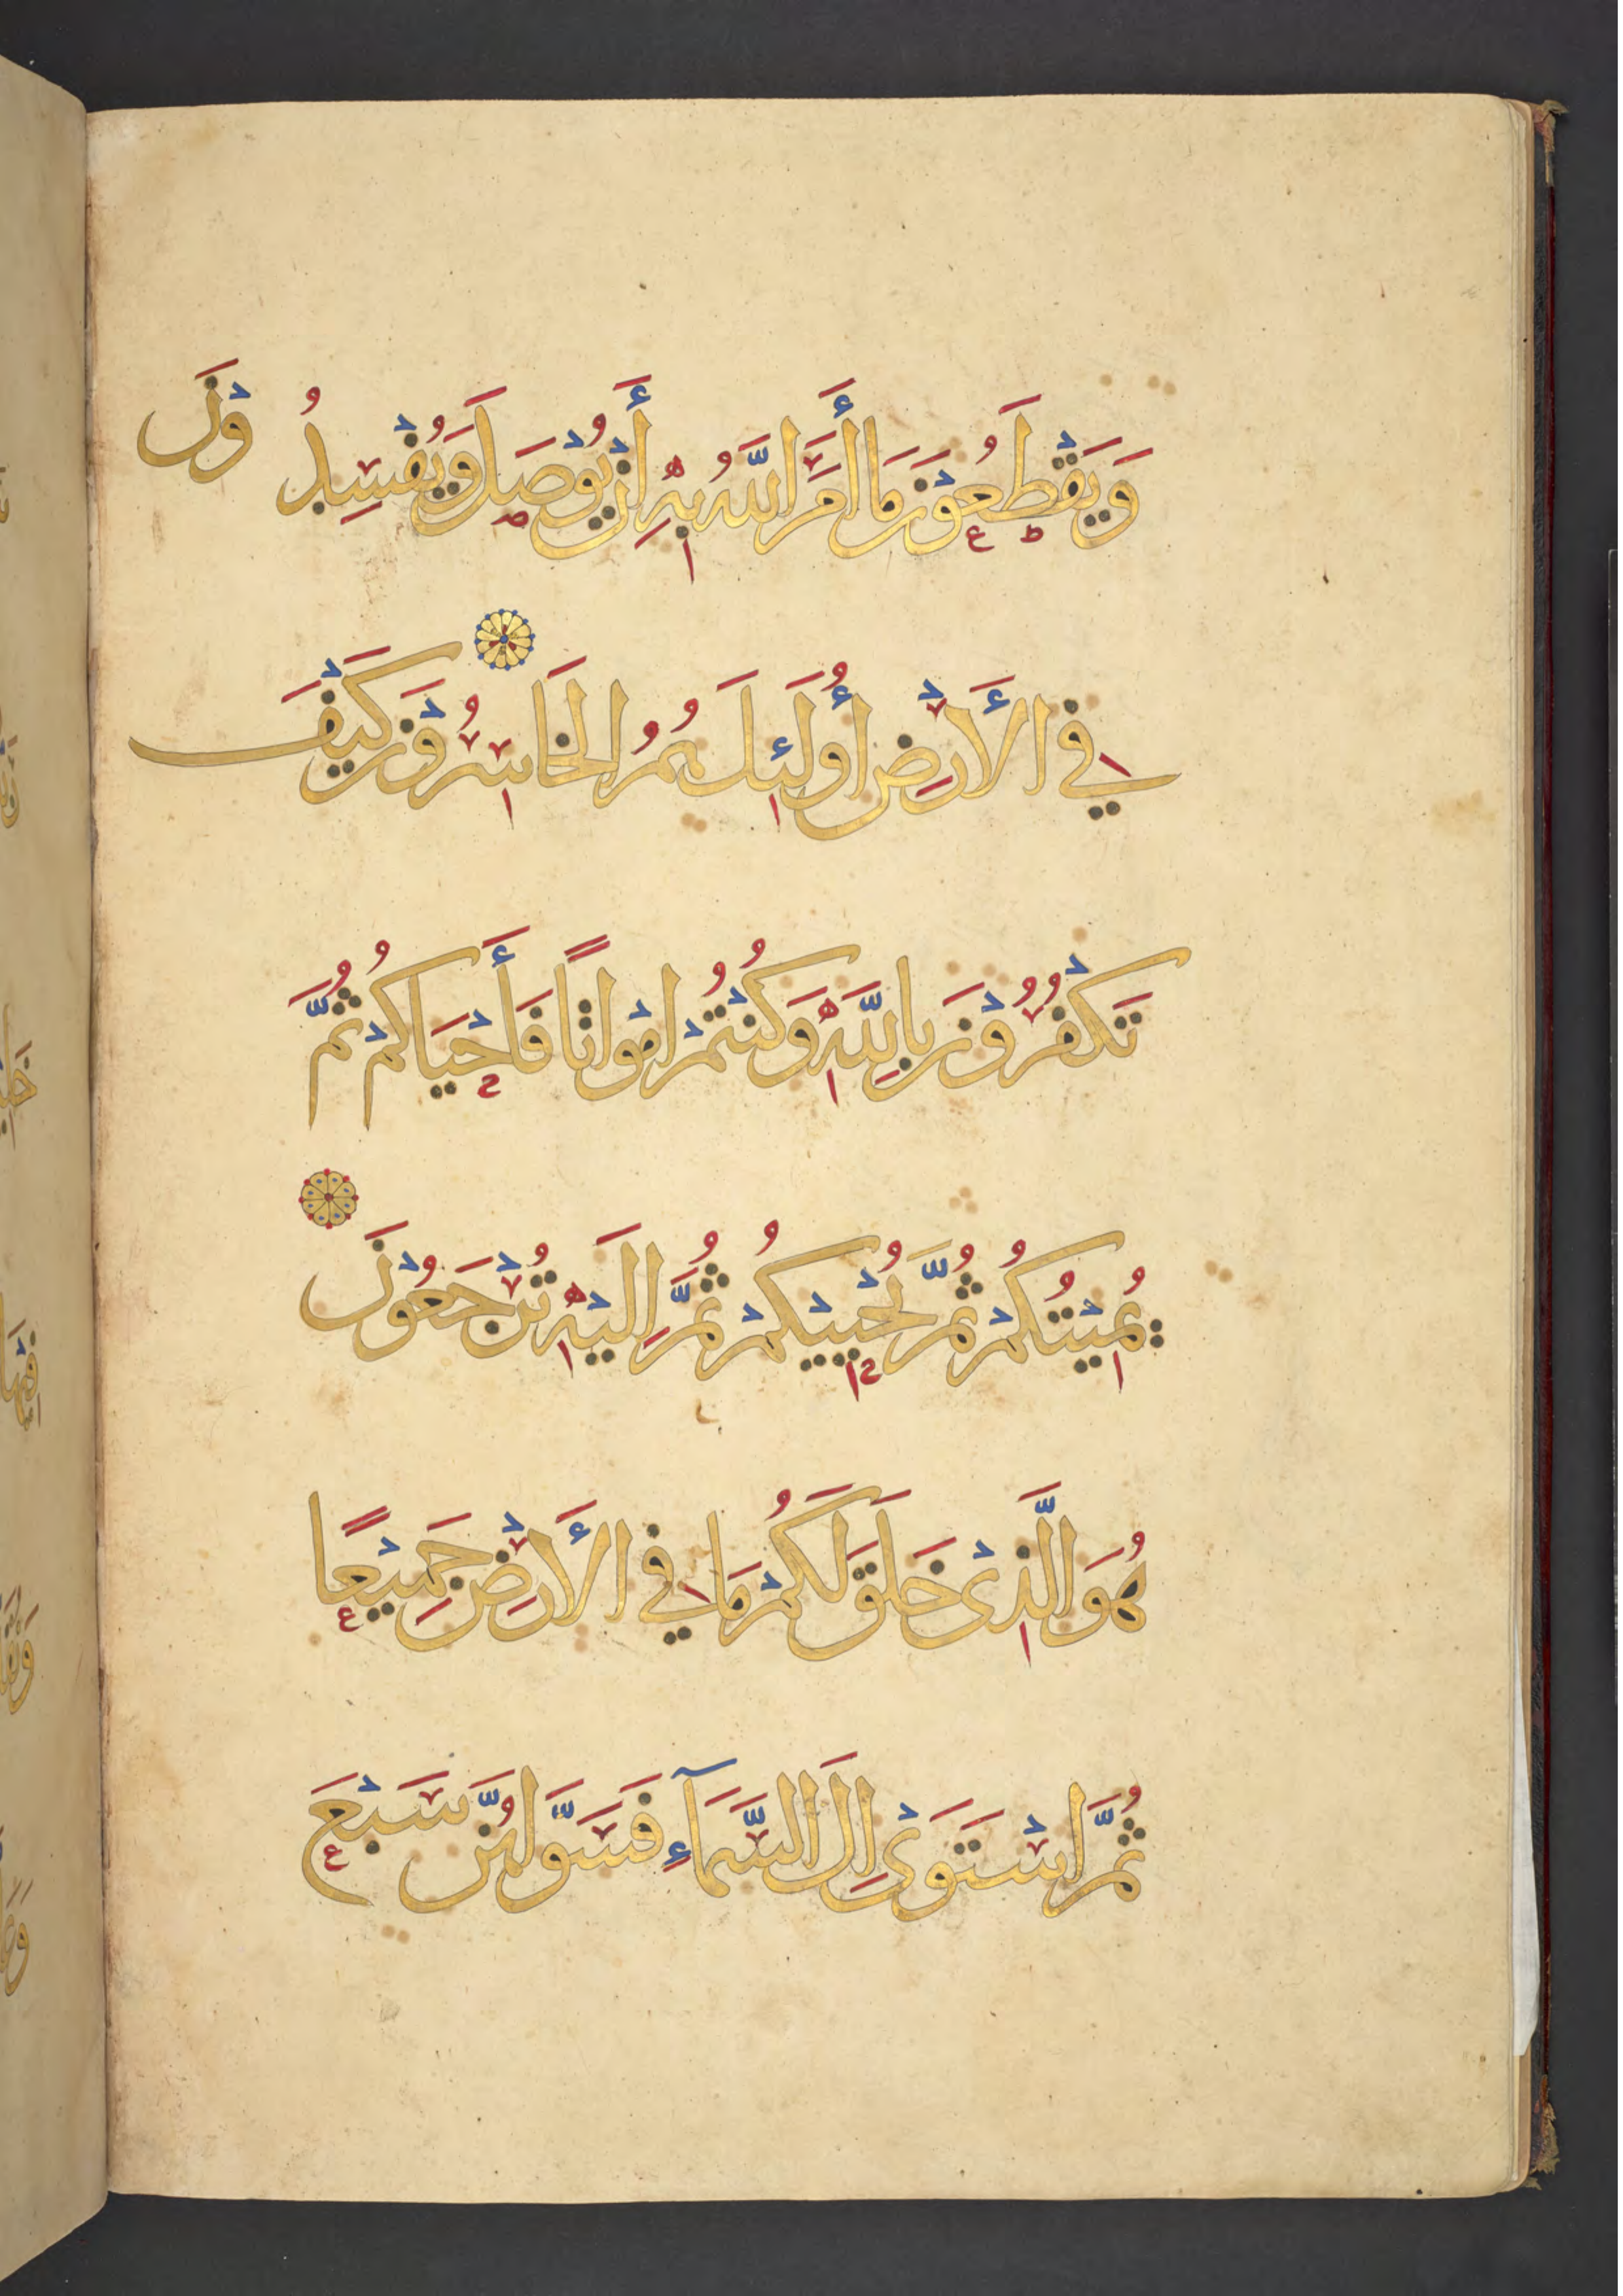 وَيَقْطَعُوْنَ مَا أَمَرَ اللَّهُ بِهِ أَنْ يُوْصَلَ وَيُفْسِدُوْنَ
فِي الأَرْضِ أُولَئِكَ هُمُ الْخَاسِرُوْنَ كَيْفَ
تَكْفُرُوْنَ بِاللَّهِ وَكُنْتُمْ امْوَاتًا فَأَحْيَاكُمْ ثُمَّ
يُمِيْتُكُمْ ثُمَّ يُحْيِيْكُمْ ثُمَّ إِلَيْهِ تُرْجَعُوْنَ
هُوَ الَّذِيْ خَلَقَ لَكُمْ مَا فِي الأَرْضِ جَمِيْعًا
ثُمَّ اسْتَوَىْ إِلَى السَّمَآءِ فَسَوَّاهُنَّ سَبْعَ